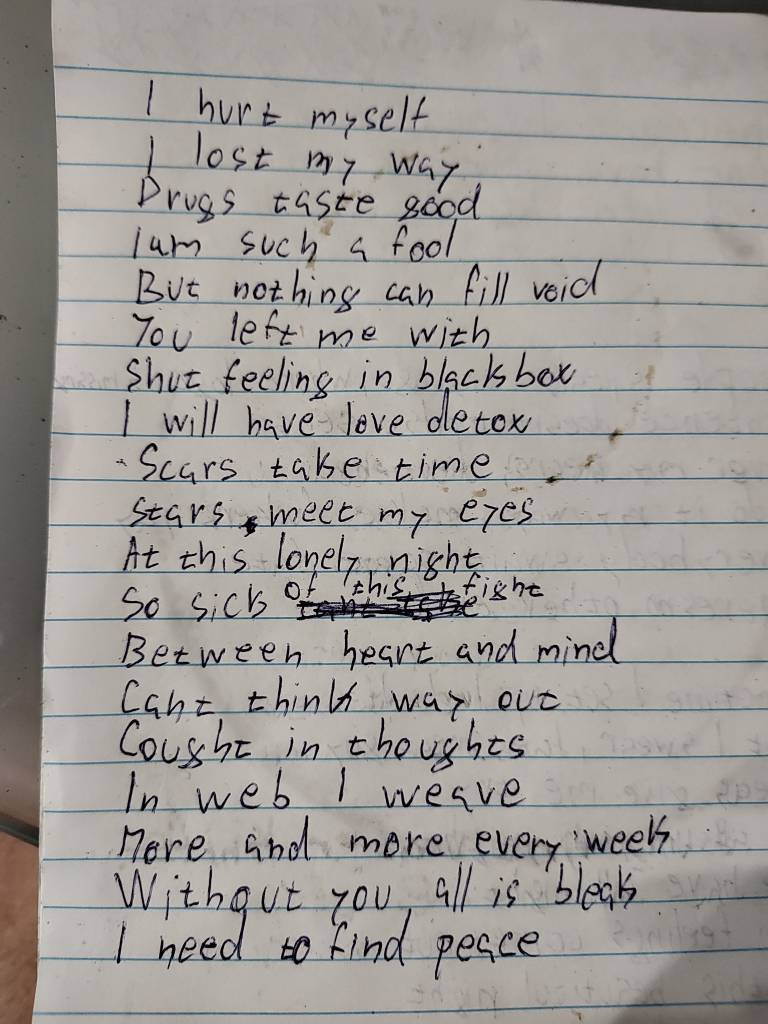 I hurt myself
I lost my way
Drugs taste good
I am such a fool
But nothing can fill void
You left me with
Shut feeling in blackbox
I will have love detox
Scars take time
Stars meet my eyes
At this lonely night
So sick of this fight
Between heart and mind
Cant think way out
Cought in thoughts
In web I weave
More and more every week
Without you all is bleak
I need to find peace